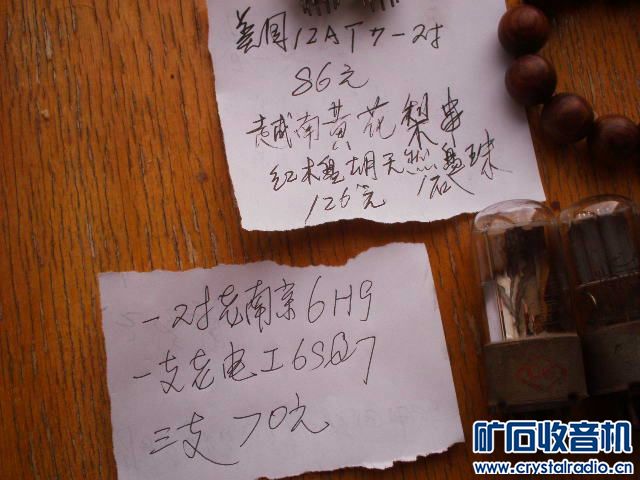 美国12AT7一对
86元
越南黄花梨串
红木 胡天然 珠
126元
一对老南京6H9
一支老电工6SQ7
三支 70元
矿石收音机
www.crystalradio.cn